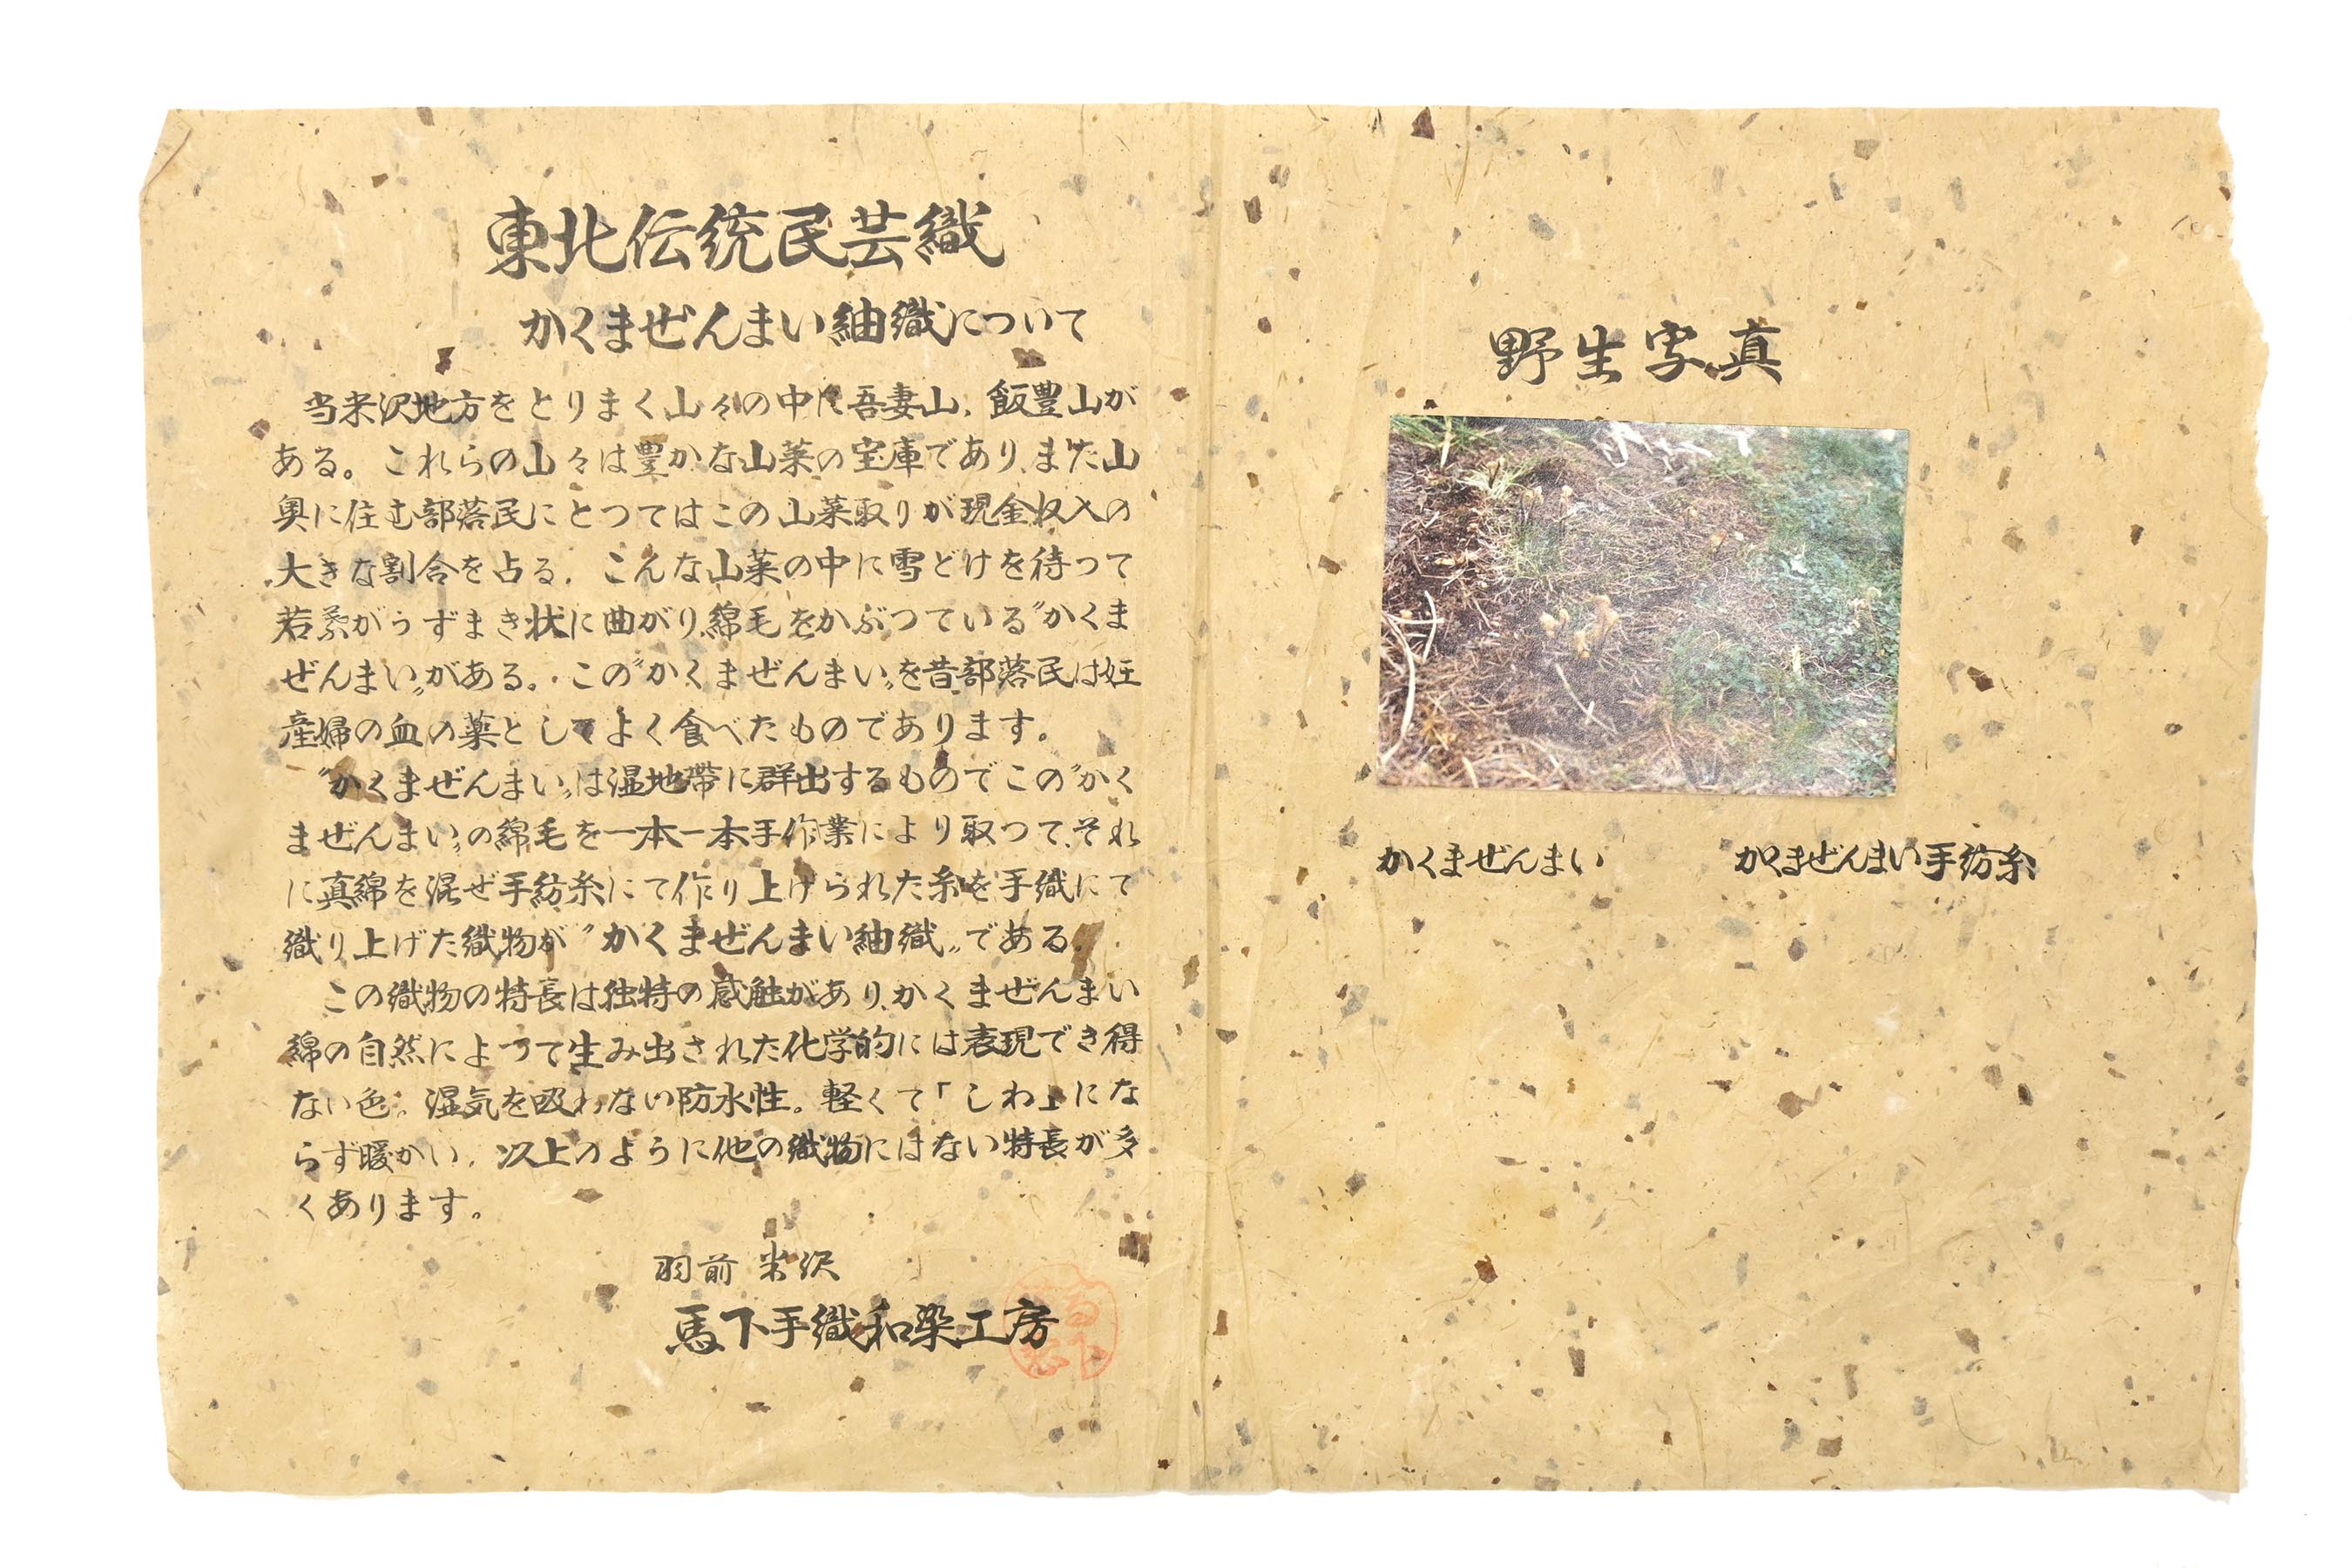 東北伝統民芸織
かくまぜんまい紬織について
当米沢地方をとりまく山々の中に吾妻山、飯豊山が
ある。これらの山々は豊かな山菜の宝庫であり、また山
奥に住む部落民にとつてはこの山菜取りが現金収入の
大きな割合を占る。こんな山菜の中に雪どけを待って
若葉がうずまき状に曲がり、綿毛をかぶつている〝かくま
ぜんまい〟がある。・この〝かくまぜんまい〟を昔部落民は妊
産婦の血の薬としてよく食べたものであります。
〝かくまぜんまい〟は湿地帯に群出するものでこの〝かく
まぜんまい〟の綿毛を一本一本手作業により取つて、それ
に真綿を混ぜ手紡糸にて作り上げられた糸を手織にて
織り上げた織物が〝かくまぜんまい紬織〟である。
この織物の特長は独特の感触があり、かくまぜんまい
綿の自然によつて生み出された化学的には表現でき得
ない色。湿気を吸わない防水性。軽くて「しわ」にな
らず暖かい。以上のように他の織物にはない特長が多
くあります。
羽前 米沢
馬下手織和染工房
野生写真
かくまぜんまい かくまぜんまい手紡糸